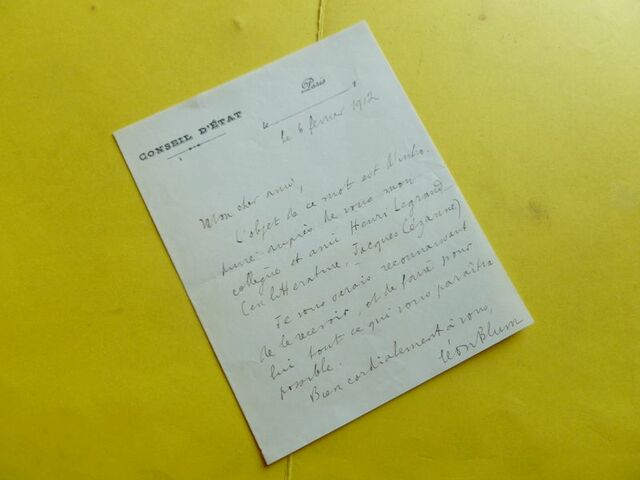 CONSEIL D'ÉTAT
Paris
le
le 6 février 1912
Mon cher ami,
L'objet de ce mot est d'intro-
duire auprès de vous mon
collègue et ami Henri Legrand
(en littérature, Jacques Cézanne)
Je vous serais reconnaissant
de le recevoir et de faire pour
lui tout ce qui vous paraîtra
possible.
Bien cordialement à vous,
Léon Blum